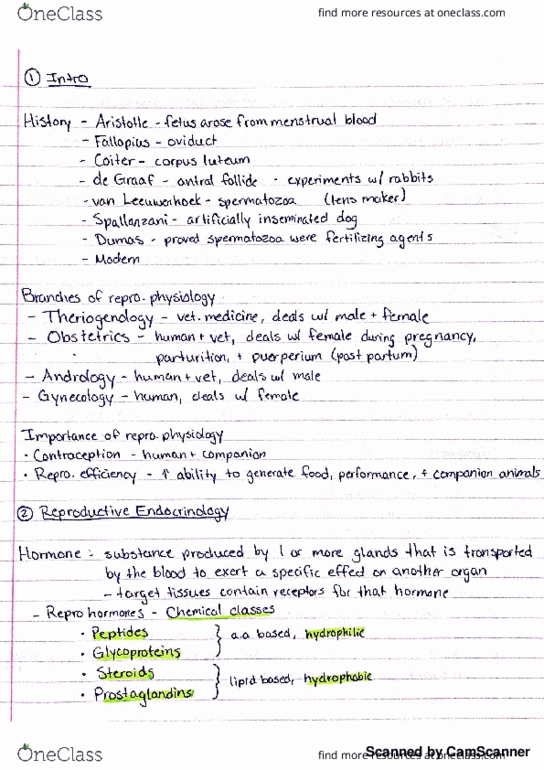 OneClass find more resources at oneclass.com
① Intro
History - Aristotle - fetus arose from menstrual blood
- Fallopius - oviduct
- Coiter - corpus luteum
- de Graaf - antral follicle · experiments w/ rabbits
- van Leeuwenhoek - spermatozoa (lens maker)
- Spallanzani - artificially inseminated dog
- Dumas - proved spermatozoa were fertilizing agents
- Modern
Branches of repro. physiology
- Theriogenology - vet. medicine, deals w/ male + female
- Obstetrics - human + vet, deals w/ female during pregnancy,
parturition, + puerperium (post partum)
- Andrology - human + vet, deals w/ male
- Gynecology - human, deals w/ female
Importance of repro. physiology
· Contraception - human + companion
· Repro. efficiency - ↑ ability to generate food, performance, + companion animals
② Reproductive Endocrinology
Hormone: substance produced by 1 or more glands that is transported
by the blood to exert a specific effect on another organ
- target tissues contain receptors for that hormone
- Repro hormones - Chemical classes
· Peptides
· Glycoproteins } a.a based, hydrophilic
· Steroids
· Prostaglandins } lipid based, hydrophobic
OneClass find more resources at oneclass.com
Scanned by CamScanner